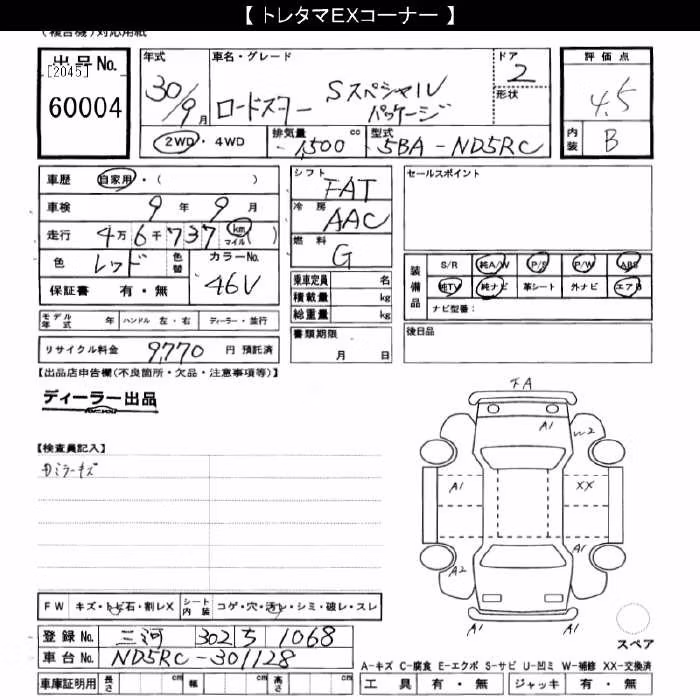 【 トレタマEXコーナー 】
(複合機)対応用紙
出品No.
[2045]
60004
年式
30/9月
車名・グレード
ロードスター Sスペシャルパッケージ
ドア
2
形状
評価点
4.5
内装
B
2WD・4WD
排気量 1,500 cc
型式 5BA-ND5RC
車歴 自家用・( )
車検 9年 9月
走行 4万6千737 km マイル ( )
色 レッド 色替
カラーNo. 46V
保証書 有・無
シフト FAT
冷房 AAC
燃料 G
乗車定員 名
積載量 kg
総重量 kg
書類期限
月 日
セールスポイント
装備品
S/R 純A/W P/S P/W ABS
純TV 純ナビ 革シート 外ナビ エアB
ナビ型番:
後日品
モデル年式 年 ハンドル 左・右 ディーラー・並行
リサイクル料金 9,770 円 預託済
【出品店申告欄(不良箇所・欠品・注意事項等)】
ディーラー出品
【検査員記入】
ミラーキズ
FA
A1
W2
A1
XX
A1
A2
A1
スペア
FW キズ・トビ石・割レX シート内装 コゲ・穴・汚レ・シミ・破レ・スレ
登録No. 三河 302 ち 1068
車台No. ND5RC-301128
車庫証明用 長さ cm 幅 cm 高さ cm
A-キズ C-腐食 E-エクボ S-サビ U-凹ミ W-補修 XX-交換済
工具 有・無 ジャッキ 有・無